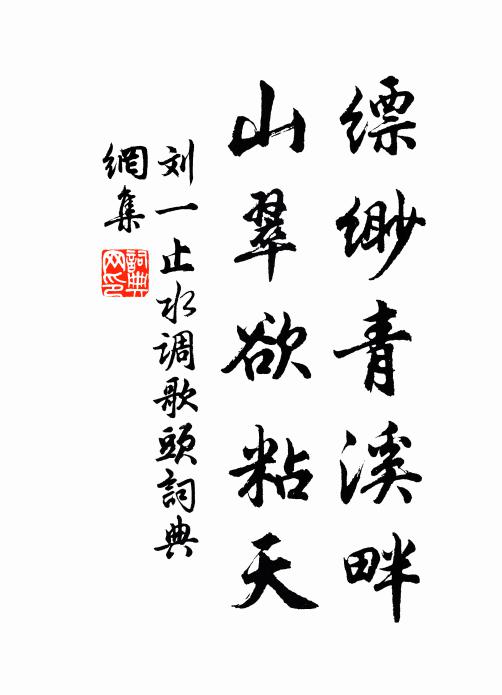 缥缈青溪畔
山翠欲粘天
刘一止水调歌頭詞典
網集
詞典网印